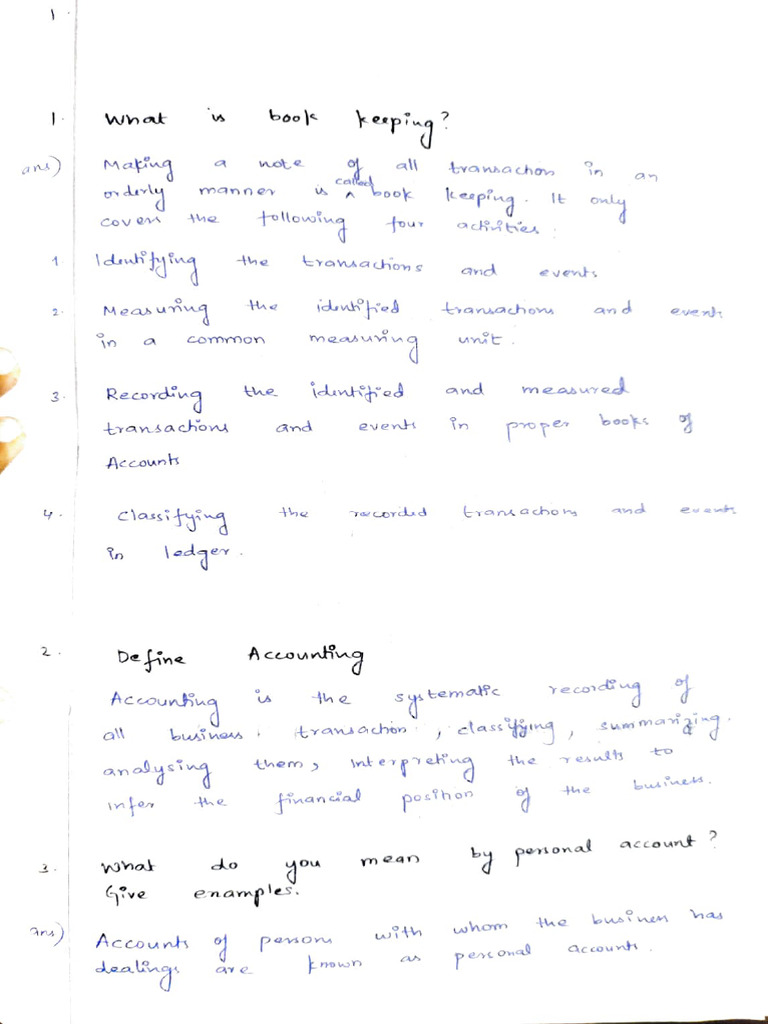 1.
1. What is book keeping?
ans) Making a note of all transaction in an
orderly manner is called book keeping. It only
covers the following four activities:
1 Identifying the transactions and events
2. Measuring the identified transactions and events
in a common measuring unit.
3. Recording the identified and measured
transactions and events in proper books of
Accounts
4. Classifying the recorded transactions and events
in ledger.
2. Define Accounting
Accounting is the systematic recording of
all business transaction, classifying, summarizing.
analysing them, Interpreting the results to
infer the financial position of the business.
3. What do you mean by personal account?
Give examples.
ans) Accounts of persons with whom the business has
dealings are known as personal accounts.